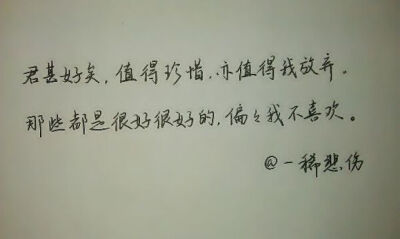 君甚好矣，值得珍惜，亦值得我放弃。
那些都是很好很好的，偏々我不喜欢。
@一稀悲伤